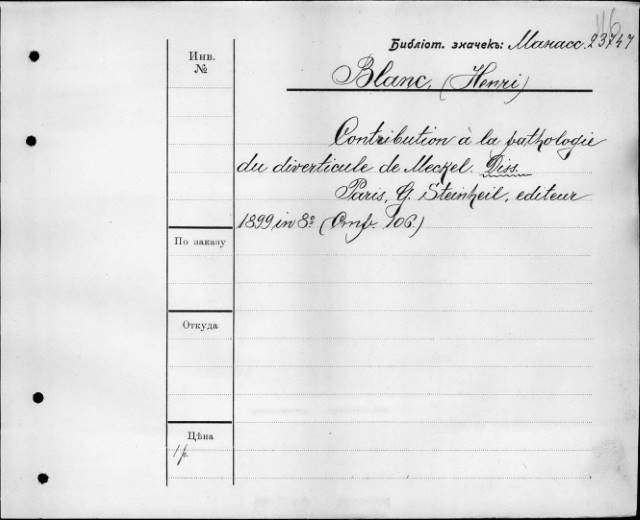 116
Библіот. значекъ: Манасс. 23747
Инв.
№
Blanc, (Henri)
Contribution à la pathologie
du diverticule de Meckel. Diss.
Paris, G. Steinheil, editeur
1899 in 8º (Стр. 106.)
По заказу
Откуда
Цѣна
1 р.